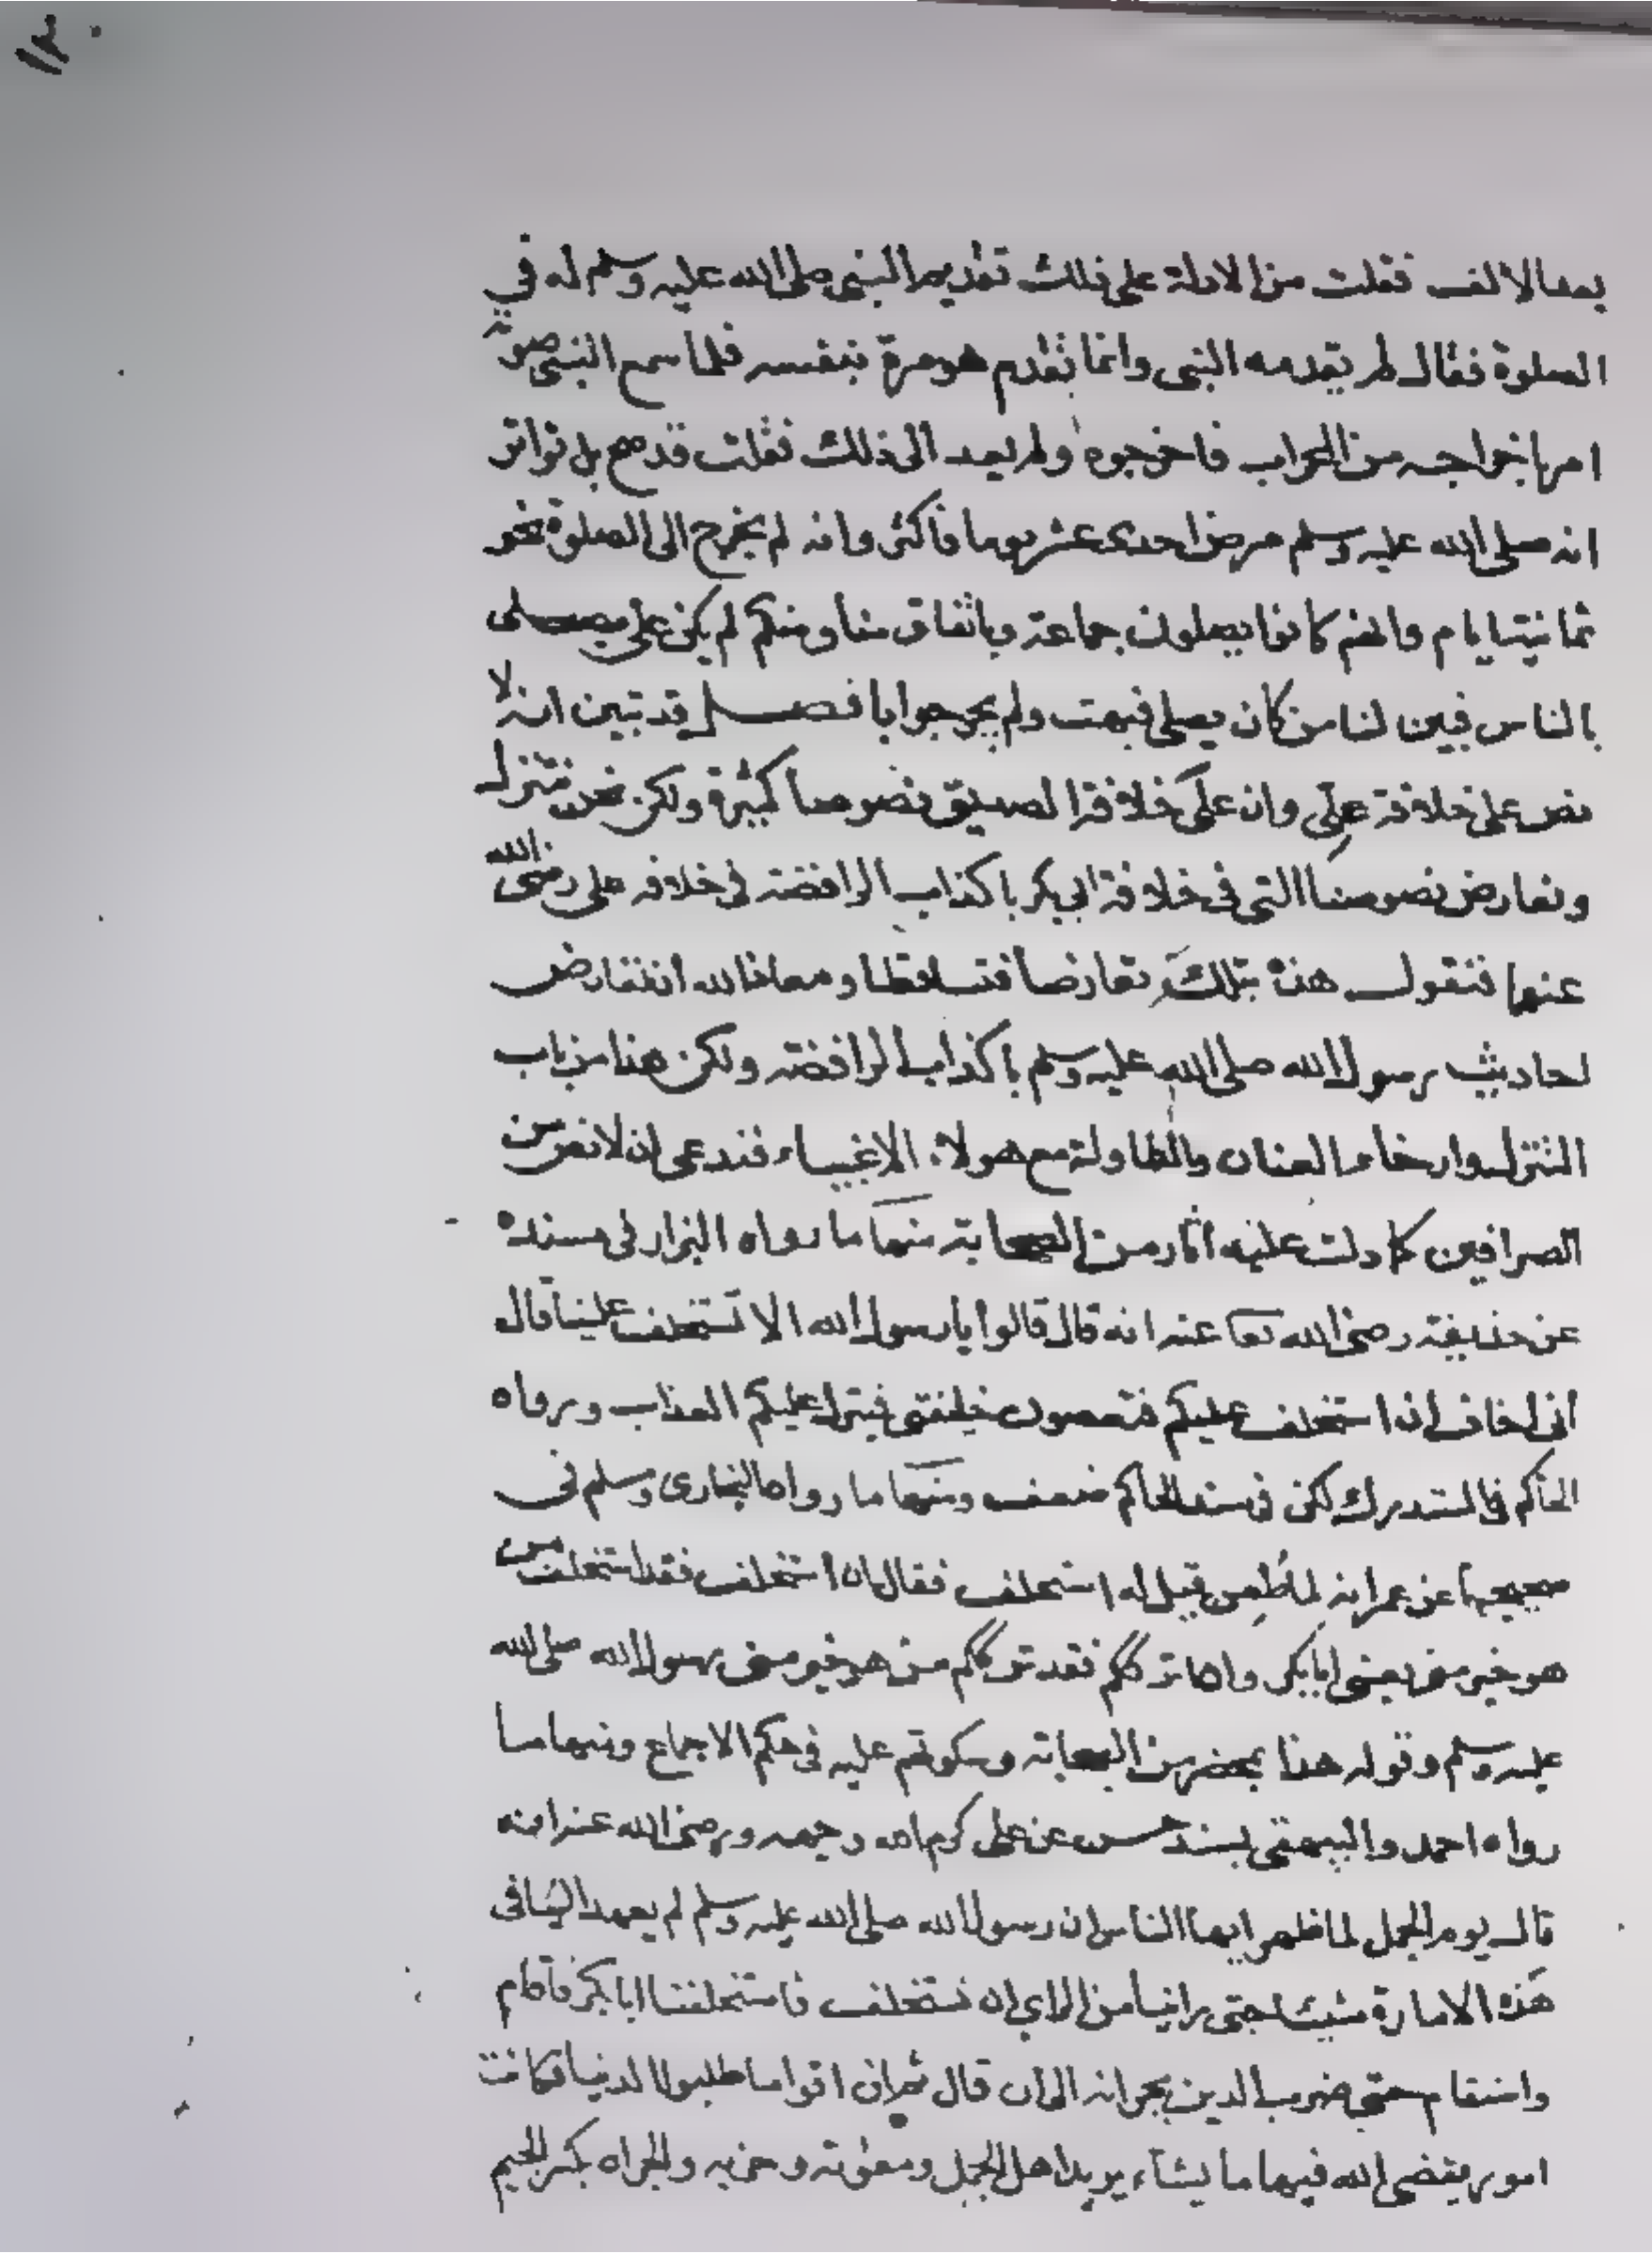 ١٣
بعد الالف فقلت من الادلة على ذلك تقديم النبي صلى الله عليه وسلم له في
الصلوة فقال لم يقدمه النبي وانما تقدم هو مرة بنفسه فلما سمع النبي صوته
امر باخراجه من المحراب فاخرجوه ولم يعد الى ذلك فقلت قد صح بل تواتر
انه صلى الله عليه وسلم مرض احدى عشر يوما فاكثر وانه لم يخرج الى الصلوة نحو
ثمانية ايام وانهم كانوا يصلون جماعة وباتفاق منا ومنكم لم يكن علي يصلى
بالناس فبين لنا من كان يصلي فبهت ولم يحر جوابا فصل قد تبين انه لا
نص على خلافة علي وان على خلافة الصديق نصوصا كثيرة ولكن نحن نتنزل
ونعارض نصوصنا التي في خلافة ابي بكر باكذاب الرافضة في خلافه علي رضى الله
عنهما فنقول هذه بتلك تعارضا فتساقطا ومعاذ الله ان نعارض
احاديث رسول الله صلى الله عليه وسلم باكذاب الرافضة ولكن هذا من باب
التنزل وارخاء العنان والمطاولة مع هولاء الاغبياء فندعى ان لا نص من
الطرافين كما دلت عليه اثار من الصحابة منها ما رواه البزار في مسنده
عن حذيفة رضى الله تعا عنه انه قال قالوا يا رسول الله الا تستخلف علينا قال
انى اخاف ان استخلف عليكم فتعصون خليفتي فينزل عليكم العذاب ورواه
الحاكم في المستدرك لكن في سند الحاكم ضعف ومنها ما رواه البخارى ومسلم في
صحيحيهما عن عمر انه لما طعن قيل له استخلف فقال ان استخلف فقد استخلف من
هو خير منى يعنى ابا بكر وان اترككم فقد ترككم من هو خير منى رسول الله صلى الله
عليه وسلم وقوله هذا بمحضر من الصحابة وسكوتهم عليه في حكم الاجماع ومنها ما
رواه احمد والبيهقى بسند حسن عن على كرم الله وجهه ورضى الله عنه انه
قال يوم الجمل لما ظهر ايها الناس ان رسول الله صلى الله عليه وسلم لم يعهد الينا في
هذه الامارة شيئا حتى راينا من الراي ان نستخلف فاستخلفنا ابا بكر فاقام
واستقام حتى ضرب الدين بجرانه الى ان قال ثم ان اقواما طلبوا الدنيا فكانت
امور يقضى الله فيها ما يشاء يريد اهل الجمل ومعوية وحزبه والجران بكسر الجيم